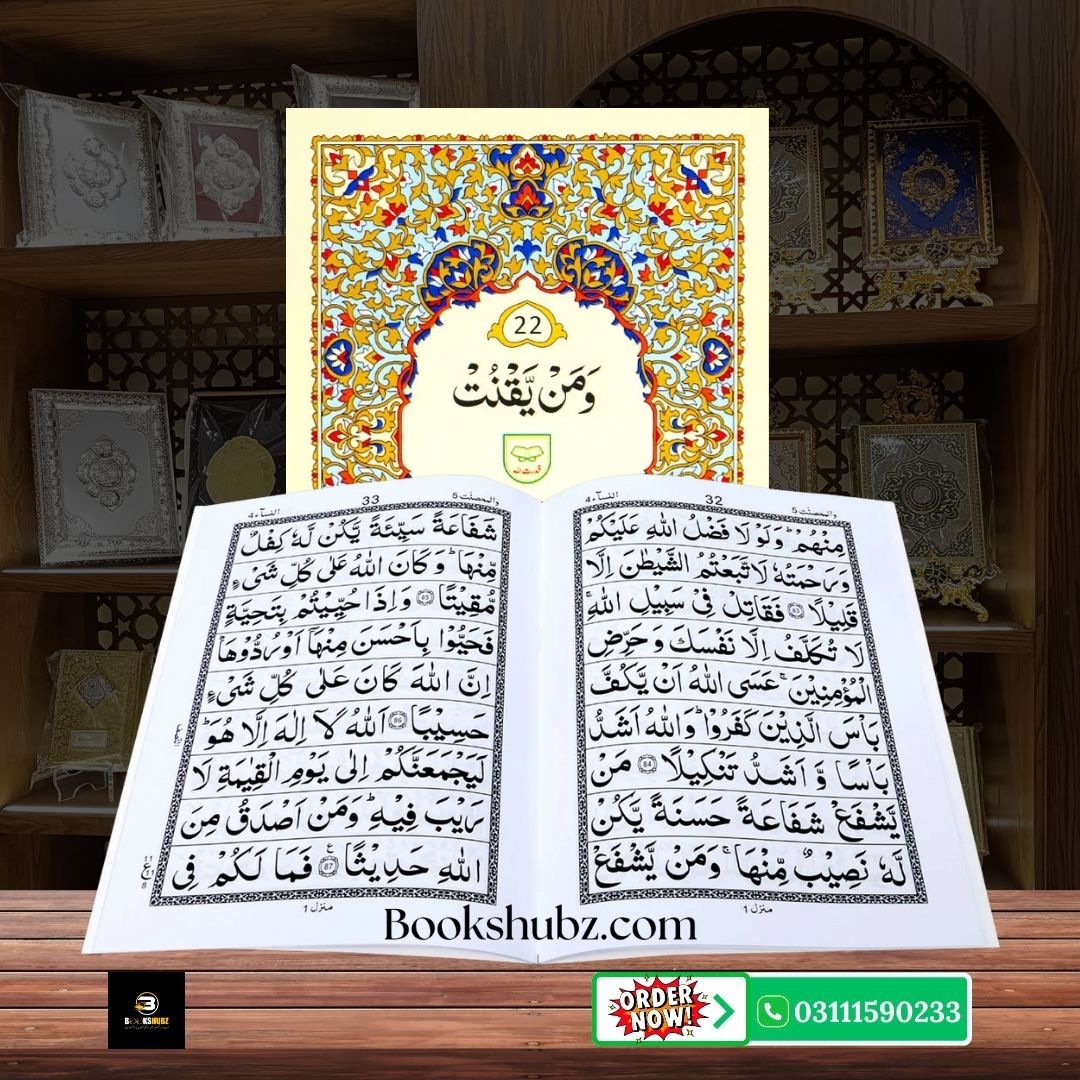 22
وَمَنْ يَّقْنُتْ
قدرت اللہ
والمحصنٰت 5
32
النسآء 4
مِنْهُمْ ؕ وَلَوْ لَا فَضْلُ اللّٰهِ عَلَيْكُمْ
وَرَحْمَتُهٗ لَاتَّبَعْتُمُ الشَّيْطٰنَ اِلَّا
قَلِيْلًا 83 فَقَاتِلْ فِيْ سَبِيْلِ اللّٰهِ ۚ
لَا تُكَلَّفُ اِلَّا نَفْسَكَ وَحَرِّضِ
الْمُؤْمِنِيْنَ ۚ عَسَى اللّٰهُ اَنْ يَّكُفَّ
بَاْسَ الَّذِيْنَ كَفَرُوْا ؕ وَاللّٰهُ اَشَدُّ
بَاْسًا وَّ اَشَدُّ تَنْكِيْلًا 84 مَنْ
يَّشْفَعْ شَفَاعَةً حَسَنَةً يَّكُنْ
لَّهٗ نَصِيْبٌ مِّنْهَا ۚ وَمَنْ يَّشْفَعْ
منزل 1
والمحصنٰت 5
33
النسآء 4
شَفَاعَةً سَيِّئَةً يَّكُنْ لَّهٗ كِفْلٌ
مِّنْهَا ؕ وَكَانَ اللّٰهُ عَلٰى كُلِّ شَيْءٍ
مُّقِيْتًا 85 وَاِذَا حُيِّيْتُمْ بِتَحِيَّةٍ
فَحَيُّوْا بِاَحْسَنَ مِنْهَاۤ اَوْ رُدُّوْهَا ؕ
اِنَّ اللّٰهَ كَانَ عَلٰى كُلِّ شَيْءٍ
حَسِيْبًا 86 اَللّٰهُ لَاۤ اِلٰهَ اِلَّا هُوَ ؕ
لَيَجْمَعَنَّكُمْ اِلٰى يَوْمِ الْقِيٰمَةِ لَا
رَيْبَ فِيْهِ ؕ وَمَنْ اَصْدَقُ مِنَ
اللّٰهِ حَدِيْثًا 87 فَمَا لَكُمْ فِي
11
ع
11
8
منزل 1
Bookshubz.com
BOOKSHUBZ
ORDER
NOW!
03111590233